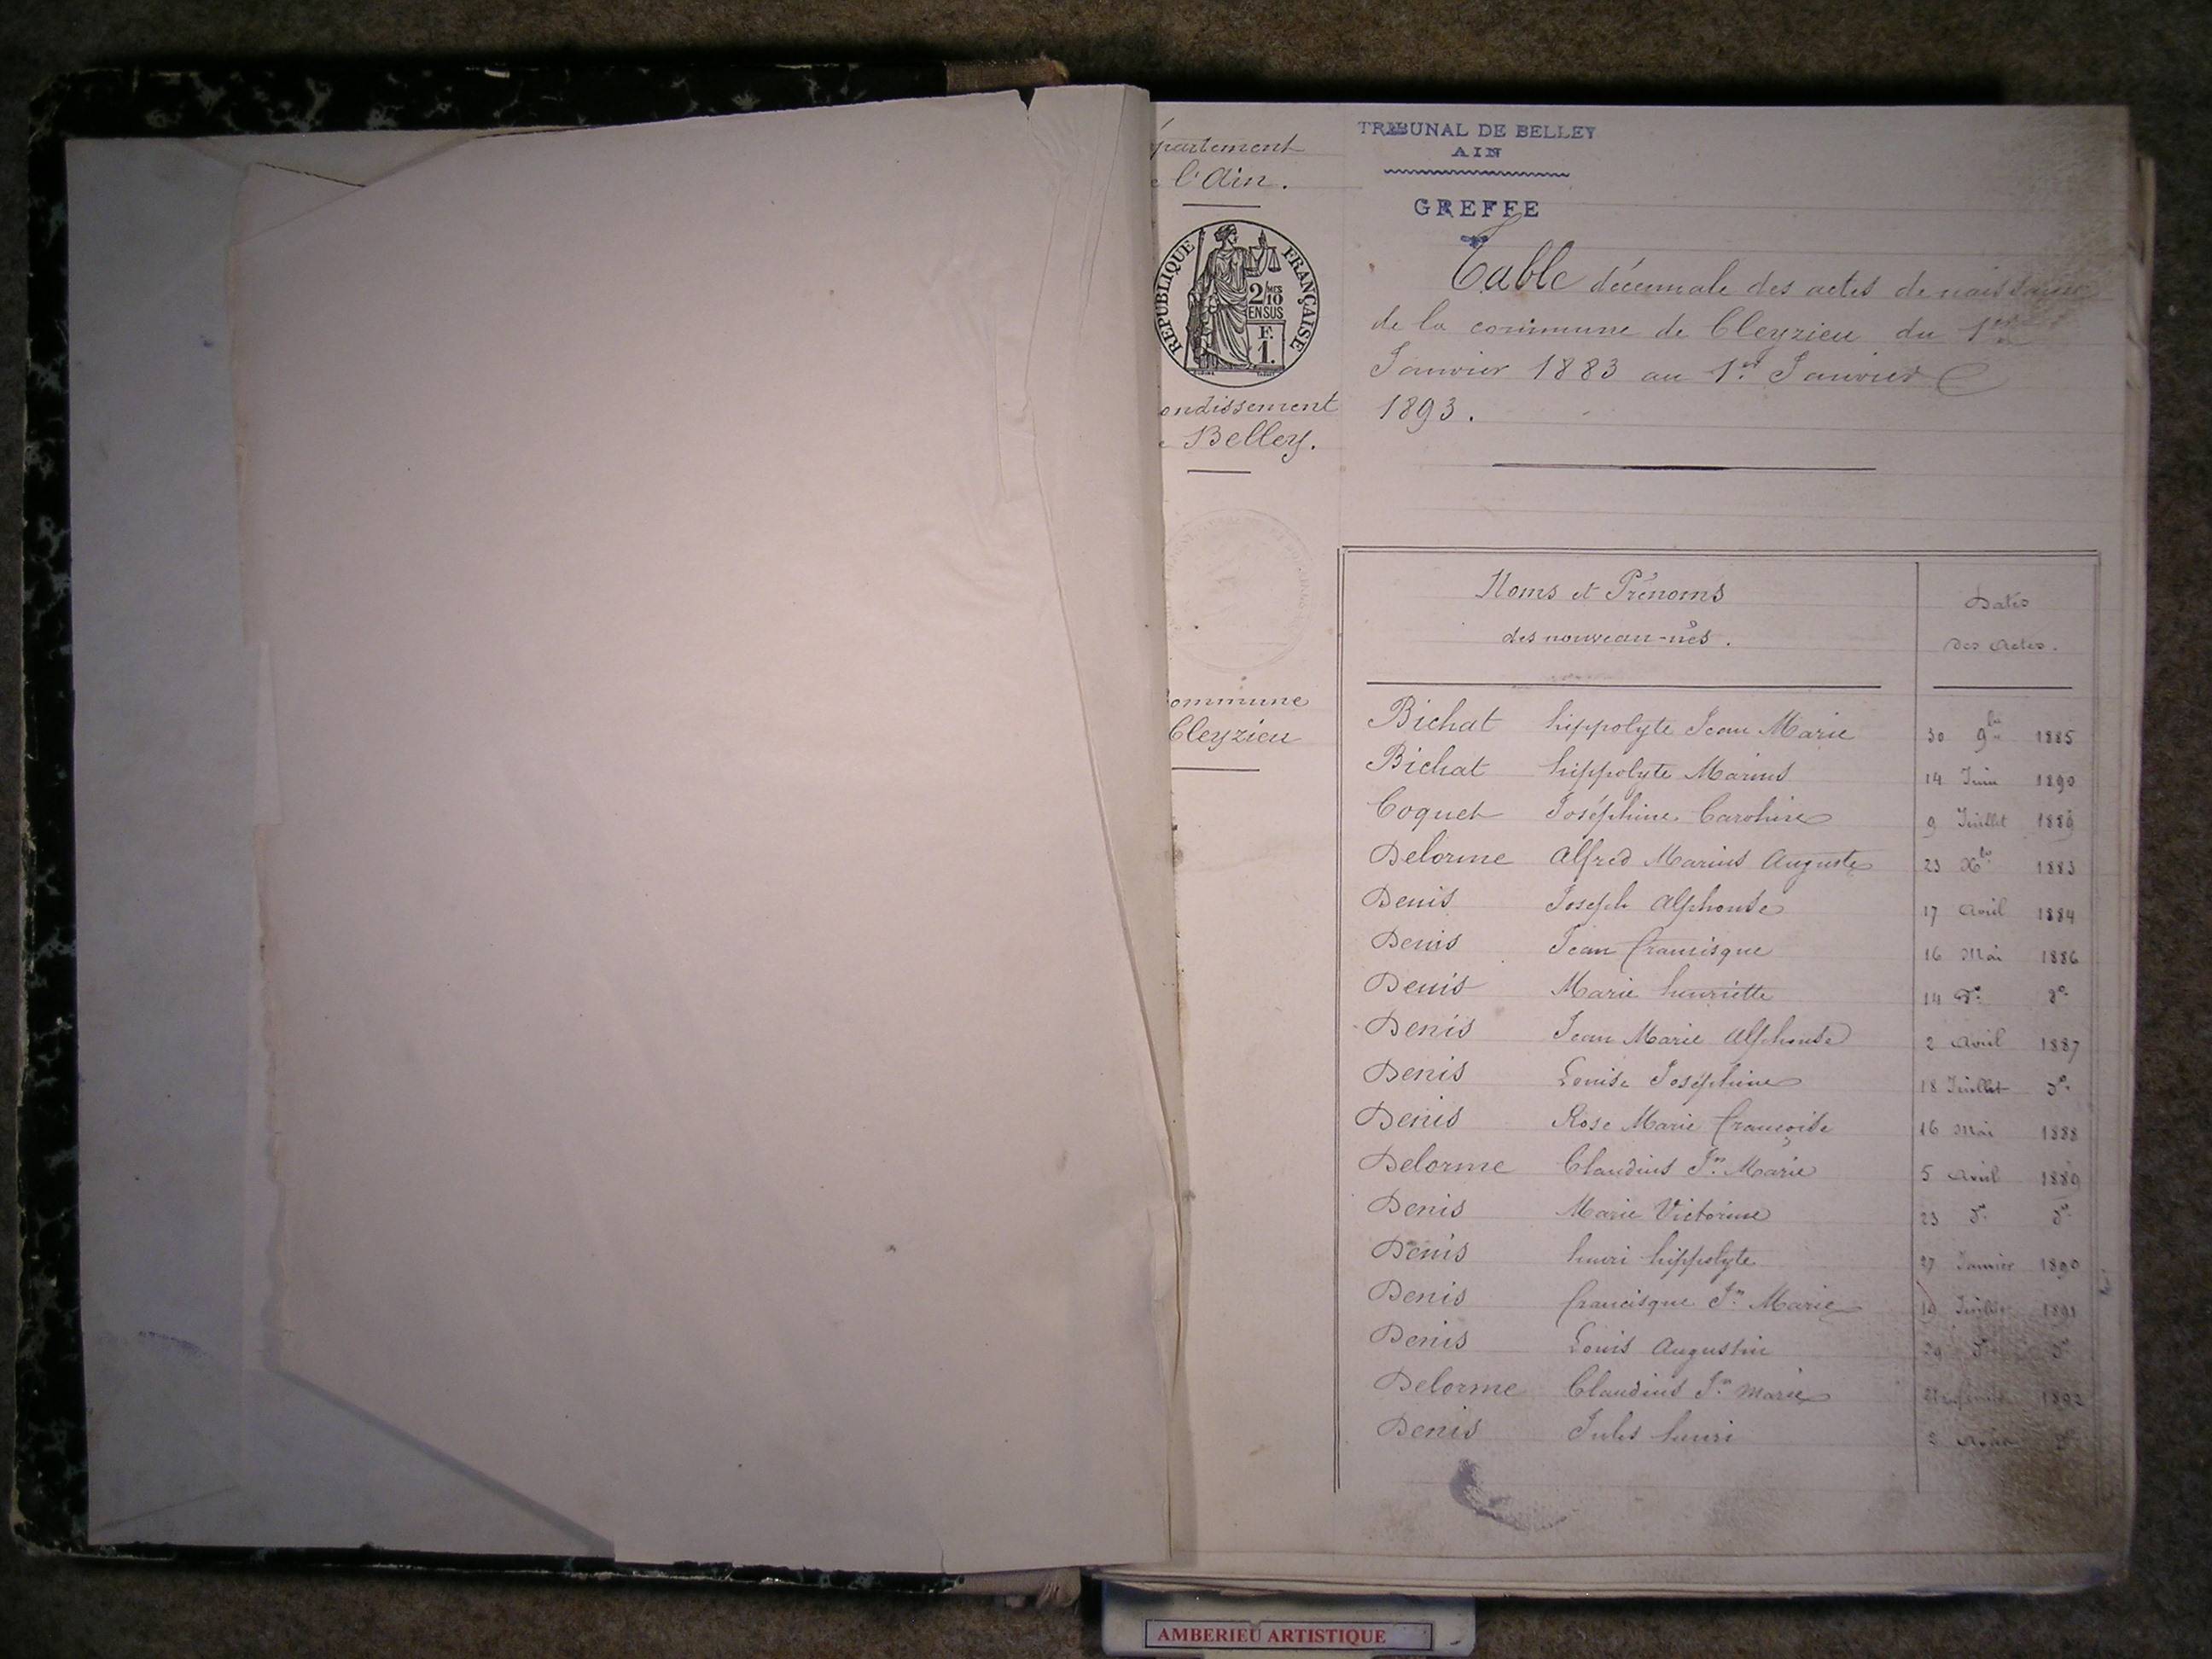 partement
l'Ain.
RÉPUBLIQUE FRANÇAISE
2/10 MES
EN SUS
F.
1.
ondissement
Belley.
ommune
Cleyzieu
TRIBUNAL DE BELLEY
AIN
GREFFE
Table décennale des actes de naissance
de la commune de Cleyzieu du 1er
Janvier 1883 au 1er Janvier
1893.
Noms et Prénoms Dates
des nouveau-nés. des Actes.
Bichat hippolyte Jean Marie 30 9bre 1885
Bichat hippolyte Marius 14 Juin 1890
Coquet Joséphine Caroline 9 Juillet 1889
Delorme Alfred Marius Auguste 23 Xbre 1883
Denis Joseph Alphonse 17 Avril 1884
Denis Jean francisque 16 Mai 1886
Denis Marie henriette 14 do do
Denis Jean Marie Alphonse 2 Avril 1887
Denis Louise Joséphine 18 Juillet do
Denis Rose Marie françoise 16 Mai 1888
Delorme Claudius Jn Marie 5 Avril 1889
Denis Marie Victorine 23 do do
Denis henri hippolyte 27 Janvier 1890
Denis francisque Jn Marie 19 Juillet 1891
Denis Louis Augustin 29 do do
Delorme Claudius Jn Marie 1892
Denis Jules henri
AMBERIEU ARTISTIQUE